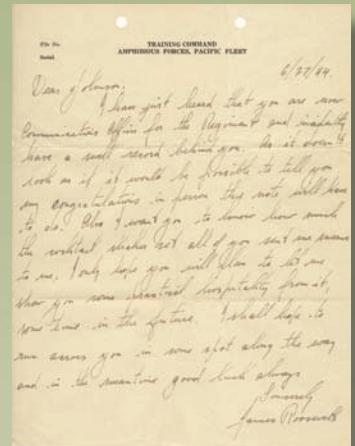 File No.
Serial
TRAINING COMMAND
AMPHIBIOUS FORCES, PACIFIC FLEET
6/27/44.
Dear Johnson,
I have just heard that you are now
Communications Officer for the Regiment and
have a swell record behind you. As it doesn't
look as if it would be possible to tell you
my congratulations in person this note will have
to do. Also I want you to know how much
the cocktail shaker set all of you sent me means
to me. I only hope you will plan to let me
show you some hospitality from it,
some time in the future. I shall hope to
run across you in some spot along the way
and in the meantime good luck always
Sincerely
James Roosevelt